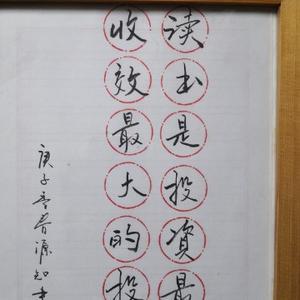 读书是投资最
收效最大的投
庚子春月源知书